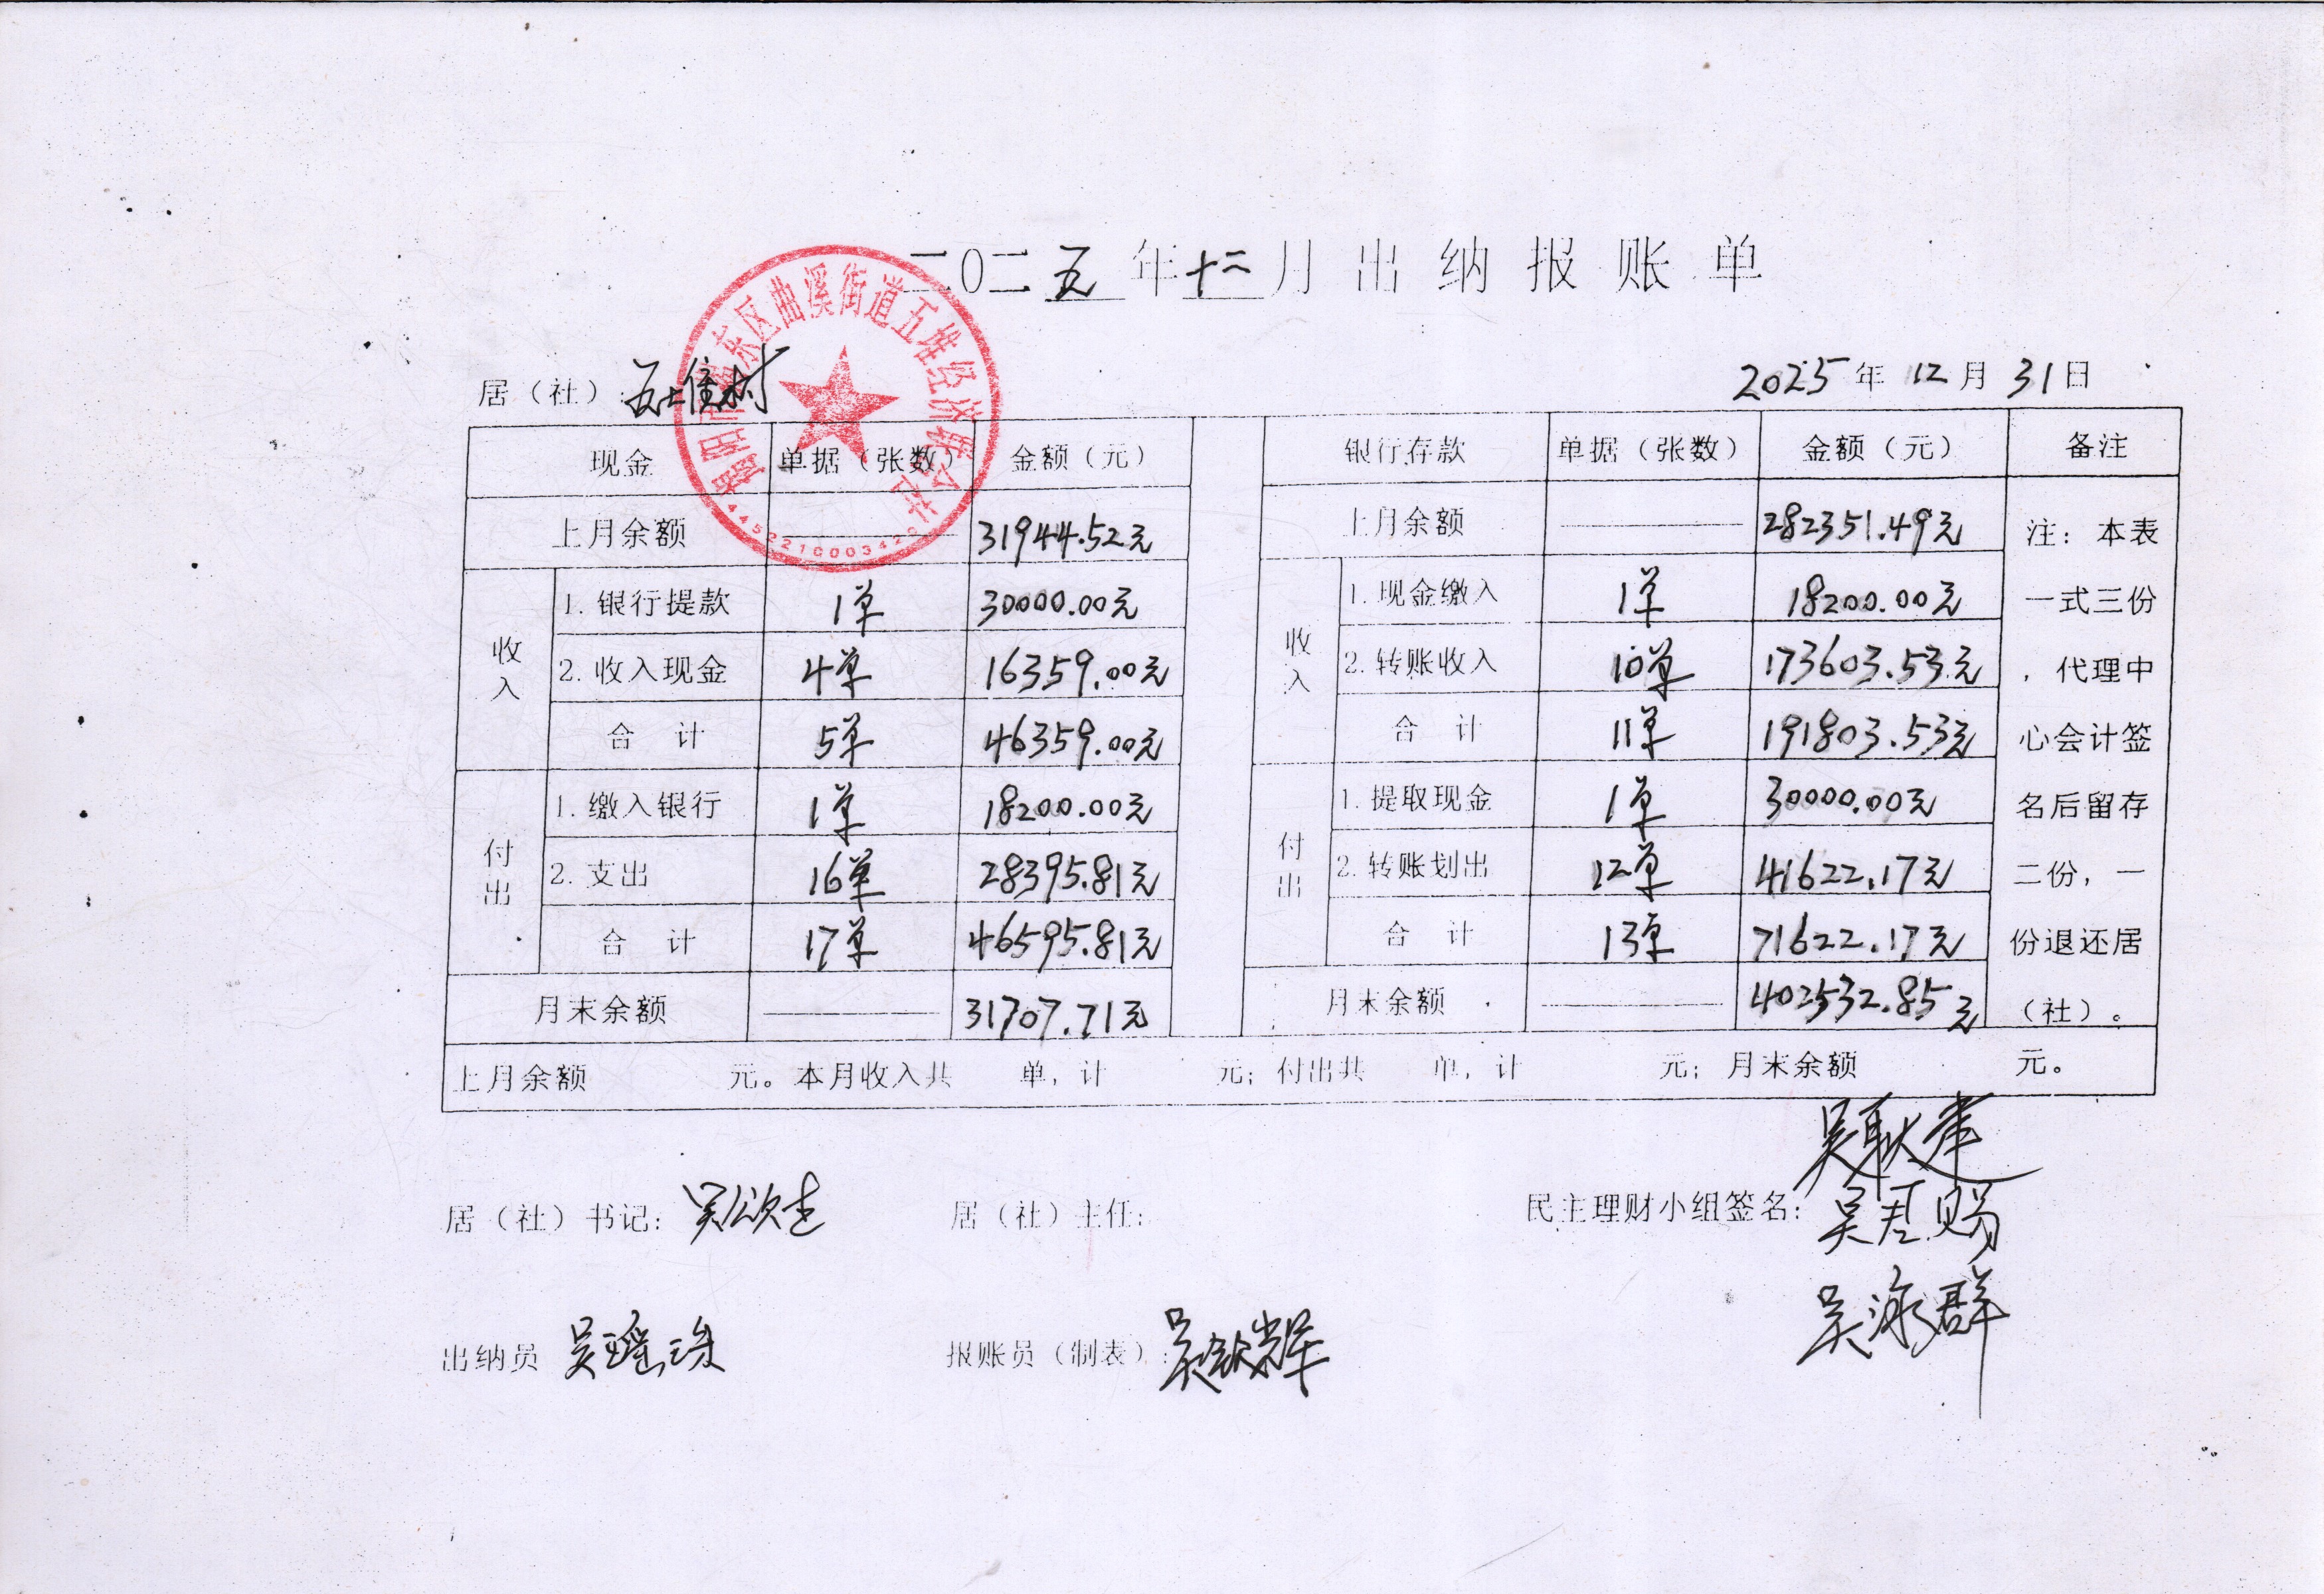 二〇二五年十二月出纳报账单
居（社）：五堆村
2025年12月31日
揭阳市揭东区曲溪街道五堆经济联合社
现金 单据（张数） 金额（元） 银行存款 单据（张数） 金额（元） 备注
上月余额 31944.52元 上月余额 282351.49元
收入 1.银行提款 1单 30000.00元 收入 1.现金缴入 1单 18200.00元
2.收入现金 4单 16359.00元 2.转账收入 10单 173603.53元
合计 5单 46359.00元 合计 11单 191803.53元
付出 1.缴入银行 1单 18200.00元 付出 1.提取现金 1单 30000.00元
2.支出 16单 28395.81元 2.转账划出 12单 41622.17元
合计 17单 46595.81元 合计 13单 71622.17元
月末余额 31707.71元 月末余额 402532.85元
注：本表
一式三份
，代理中
心会计签
名后留存
二份，一
份退还居
（社）。
上月余额 元。本月收入共 单，计 元；付出共 单，计 元；月末余额 元。
居（社）书记： 居（社）主任： 民主理财小组签名：
吴君赐
吴泳群
出纳员 吴瑶珠 报账员（制表）：